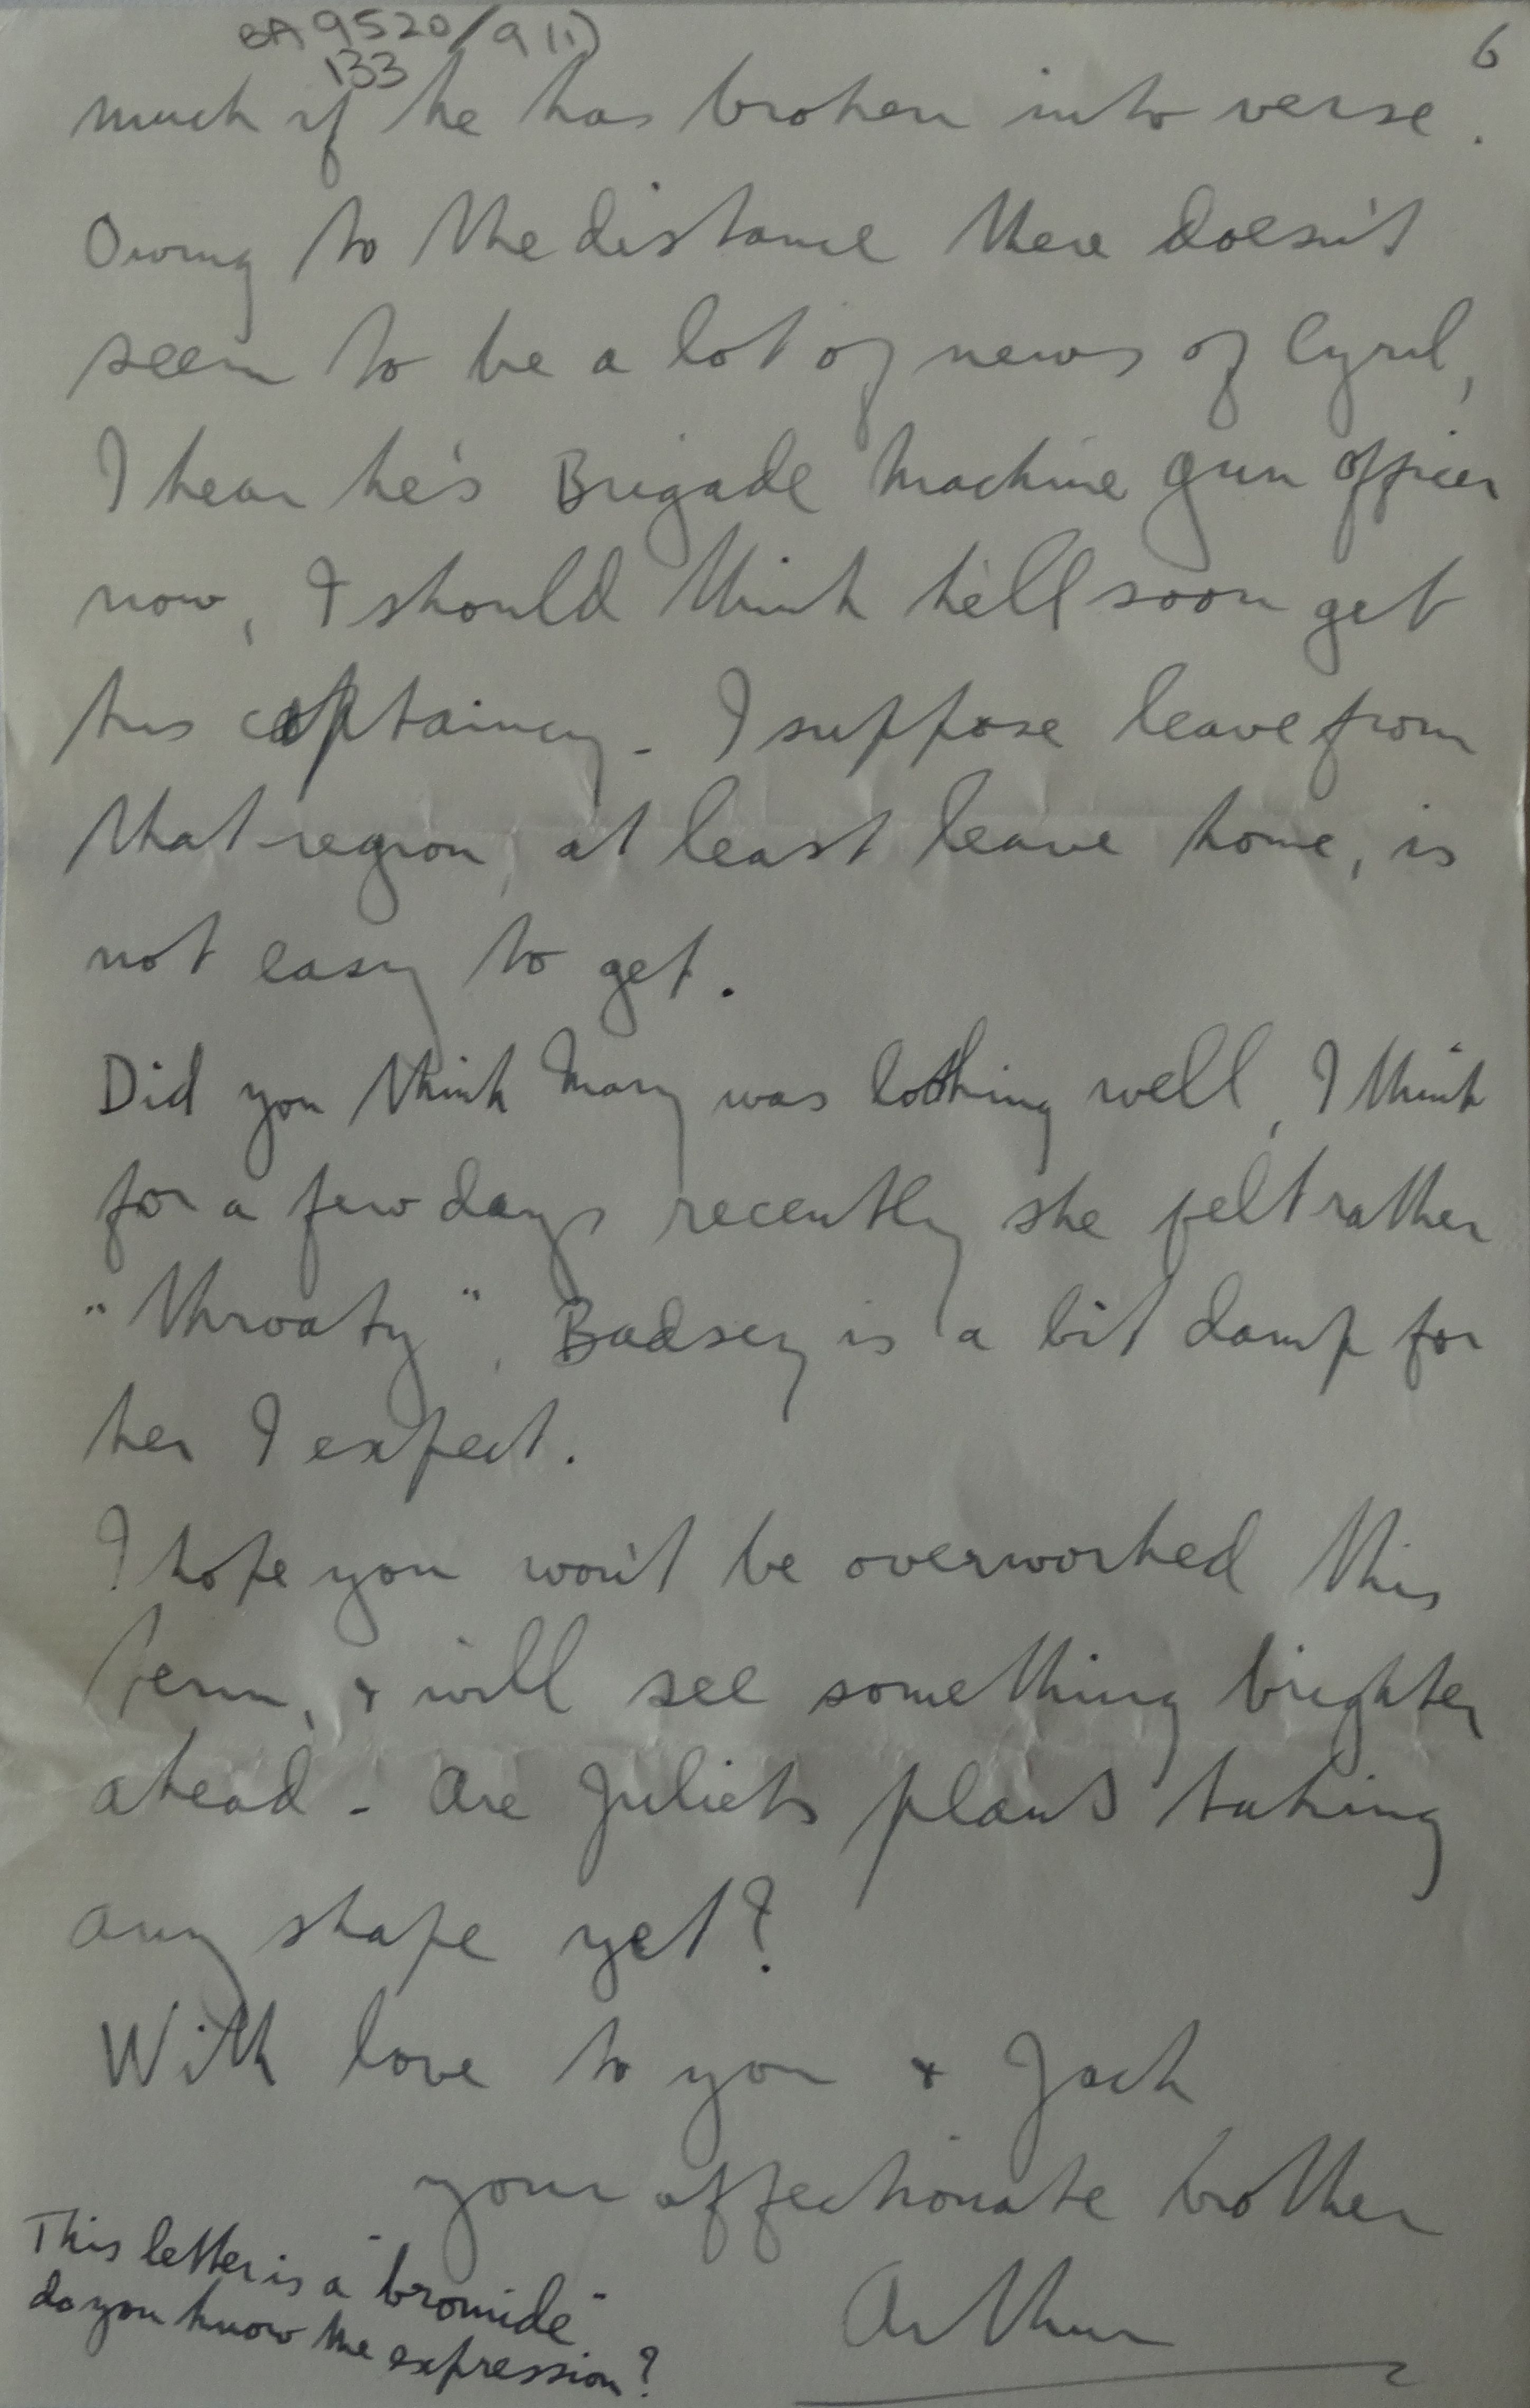 BA 9520/9 (i)
133
6
much if he has broken into verse.
Owing to the distance there doesn't
seem to be a lot of news of Cyril,
I hear he's Brigade Machine gun officer
now, I should think he'll soon get
his captaincy - I suppose leave from
that region, at least leave home, is
not easy to get.
Did you think Mary was looking well, I think
for a few days recently she felt rather
"throaty", Badsey is a bit damp for
her I expect.
I hope you won't be overworked this
term, & will see something brighter
ahead - are Juliets plans taking
any shape yet?
With love to you & Jack
your affectionate brother
Arthur
This letter is a "bromide"
do you know the expression?